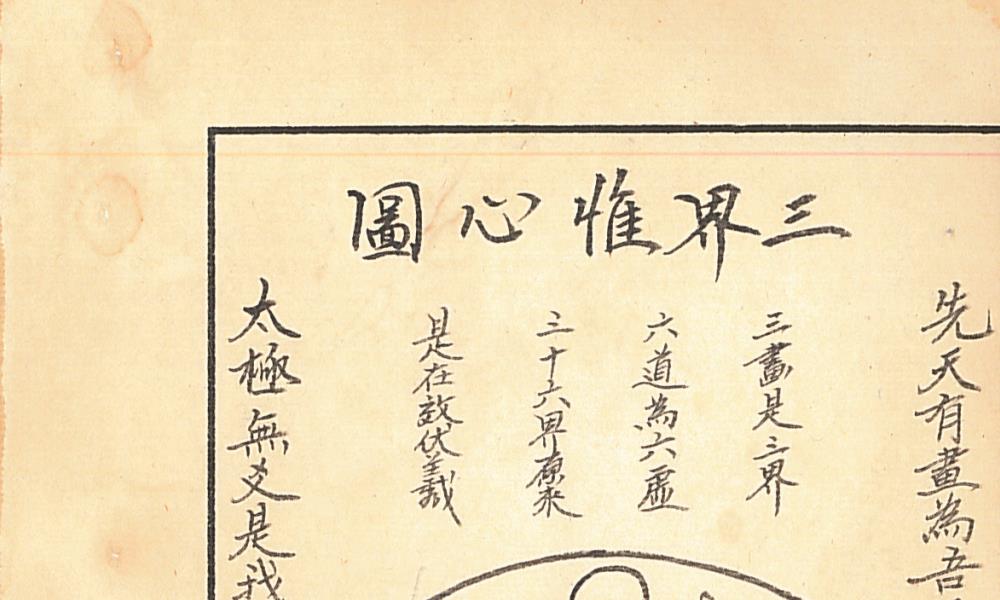 三界惟心圖
先天有畫為吾
三畫是三界
六道為六虛
三十六界原來
是在效伏羲
太極無爻是我